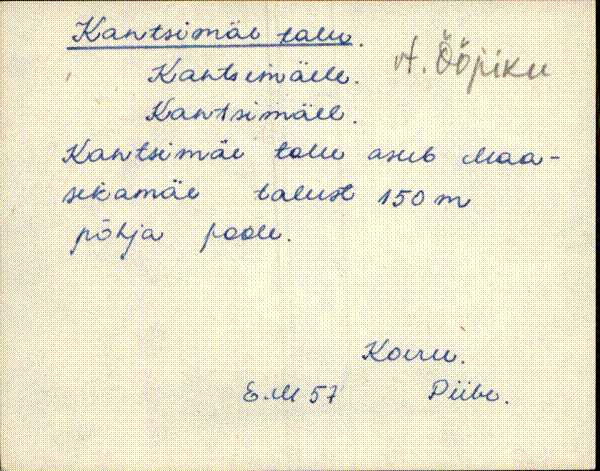 Kantsimäe talu.
A. Ööpiku
Kantsimäele.
Kantsimäel.
Kantsimäe talu asub Maa-
sikamäe talust 150 m
põhja poole.
Koeru.
E.M 57 Piibe.